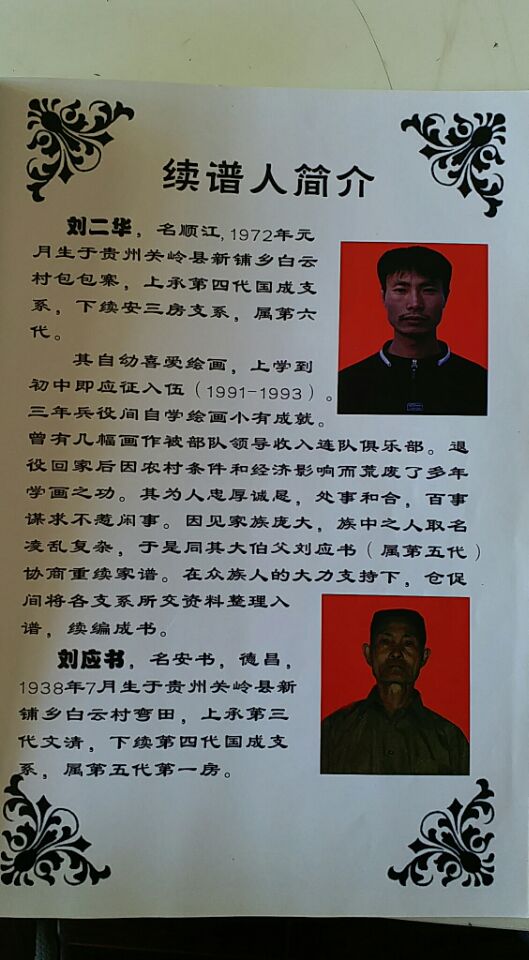 续谱人简介
刘二华，名顺江，1972年元
月生于贵州关岭县新铺乡白云
村包包寨，上承第四代国成支
系，下续安三房支系，属第六
代。
其自幼喜爱绘画，上学到
初中即应征入伍（1991-1993）。
三年兵役间自学绘画小有成就。
曾有几幅画作被部队领导收入连队俱乐部。退
役回家后因农村条件和经济影响而荒废了多年
学画之功。其为人忠厚诚恳，处事和合，百事
谋求不惹闲事。因见家族庞大，族中之人取名
凌乱复杂，于是同其大伯父刘应书（属第五代）
协商重续家谱。在众族人的大力支持下，仓促
间将各支系所交资料整理入
谱，续编成书。
刘应书，名安书，德昌，
1938年7月生于贵州关岭县新
铺乡白云村弯田，上承第三
代文清，下续第四代国成支
系，属第五代第一房。